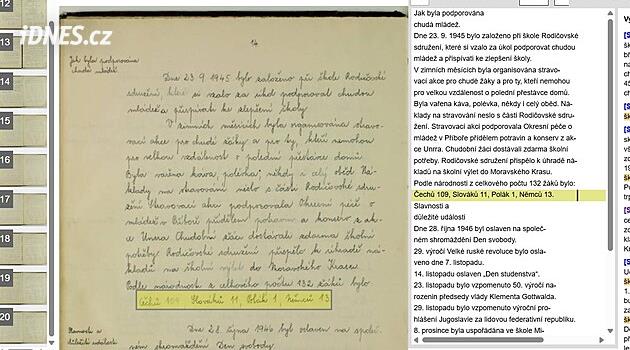 12
13
14
15
16
17
18
19
20
iDNES.cz
14
Jak byla podporována
chudá mládež.
Dne 23. 9. 1945 bylo založeno při škole Rodičovské
sdružení, které si vzalo za úkol podporovat chudou
mládež a přispívati ke zlepšení školy.
V zimních měsících byla organisována stravo-
vací akce pro chudé žáky a pro ty, kteří nemohou
pro velkou vzdálenost v polední přestávce domů.
Byla vařena káva, polévka, někdy i celý oběd. Ná-
klady na stravování neslo s části Rodičovské sdru-
žení. Stravovací akci podporovala Okresní péče o
mládež v Příboře přídělem potravin a konserv z ak-
ce Unrra. Chudobní žáci dostávali zdarma školní
potřeby. Rodičovské sdružení přispělo k úhradě ná-
kladů na školní výlet do Moravského Krasu.
Podle národnosti z celkového počtu 132 žáků bylo
Čechů 109, Slováků 11, Polák 1, Němců 13.
Slavnosti a
důležité události
Dne 28. října 1946 byl oslaven na společ-
ném shromáždění Den svobody.
Jak byla podporována
chudá mládež.
Dne 23. 9. 1945 bylo založeno při škole Rodičovské
sdružení, které si vzalo za úkol podporovat chudou
mládež a přispívati ke zlepšení školy.
V zimních měsících byla organisována stravo-
vací akce pro chudé žáky a pro ty, kteří nemohou
pro velkou vzdálenost v polední přestávce domů.
Byla vařena káva, polévka, někdy i celý oběd. Ná-
klady na stravování neslo s části Rodičovské sdru-
žení. Stravovací akci podporovala Okresní péče o
mládež v Příboře přídělem potravin a konserv z ak-
ce Unrra. Chudobní žáci dostávali zdarma školní
potřeby. Rodičovské sdružení přispělo k úhradě ná-
kladů na školní výlet do Moravského Krasu.
Podle národnosti z celkového počtu 132 žáků bylo:
Čechů 109, Slováků 11, Polák 1, Němců 13.
Slavnosti a
důležité události
Dne 28. října 1946 byl oslaven na společ-
ném shromáždění Den svobody.
29. výročí Velké ruské revoluce bylo osla-
veno dne 7. listopadu.
14. listopadu oslaven „Den studenstva".
23. listopadu bylo vzpomenuto 50. výročí na-
rozenin předsedy vlády Klementa Gottwalda.
29. listopadu bylo vzpomenuto výročí pro-
hlášení Jugoslavie za lidovou federativní republiku.
8. prosince byla uspořádána ve škole Mi-